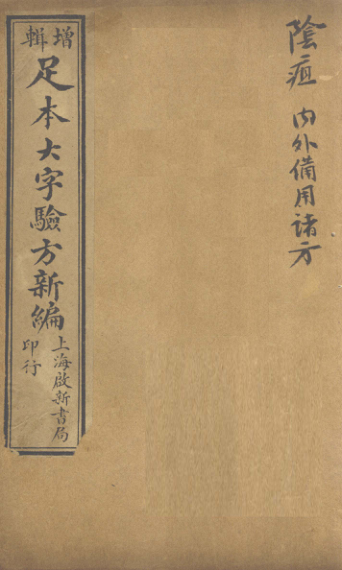 陰疽 內外備用諸方
增輯
足本大字驗方新編
上海啟新書局
印行